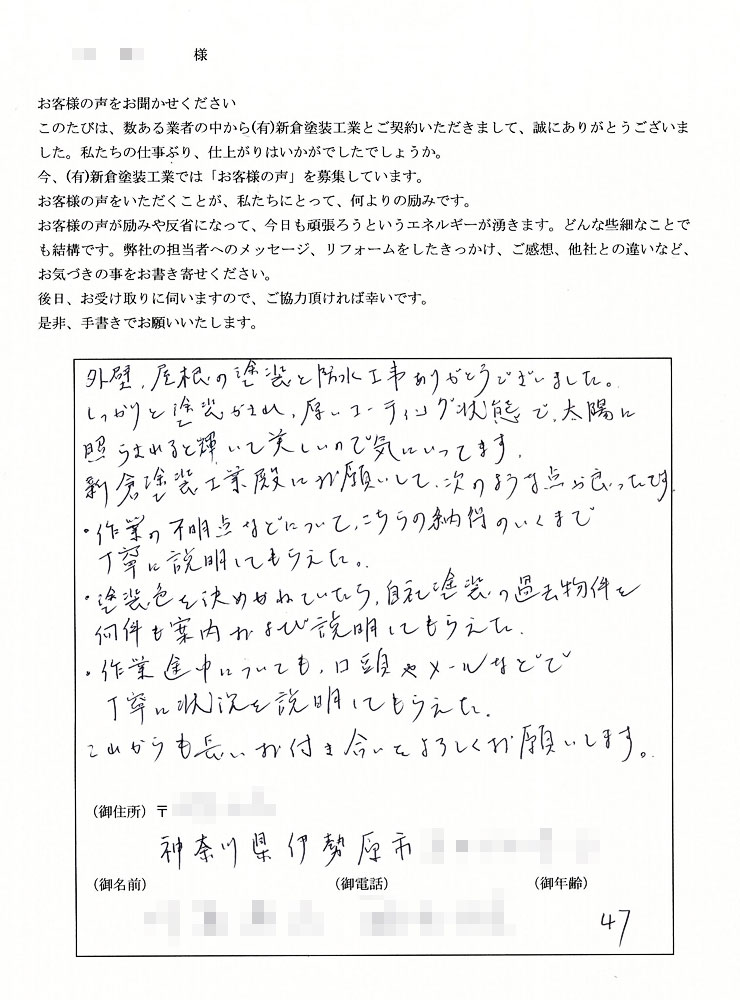 様
お客様の声をお聞かせください
このたびは、数ある業者の中から(有)新倉塗装工業とご契約いただきまして、誠にありがとうございま
した。私たちの仕事ぶり、仕上がりはいかがでしたでしょうか。
今、(有)新倉塗装工業では「お客様の声」を募集しています。
お客様の声をいただくことが、私たちにとって、何よりの励みです。
お客様の声が励みや反省になって、今日も頑張ろうというエネルギーが湧きます。どんな些細なことで
も結構です。弊社の担当者へのメッセージ、リフォームをしたきっかけ、ご感想、他社との違いなど、
お気づきの事をお書き寄せください。
後日、お受け取りに伺いますので、ご協力頂ければ幸いです。
是非、手書きでお願いいたします。
外壁，屋根の塗装と防水工事ありがとうございました。
しっかりと塗装がされ，厚いコーティング状態で，太陽に
照らされると輝いて美しいので気にいってます。
新倉塗装工業殿にお願いして，次のような点が良ったです
・作業の不明点などについて，こちらの納得のいくまで
丁寧に説明してもらえた。
・塗装色を決めかねていたら，自社塗装の過去物件を
何件も案内および説明してもらえた。
・作業途中についても，口頭やメールなどで
丁寧に状況を説明してもらえた。
これからも長いお付き合いをよろしくお願いします。
（御住所）〒
神奈川県伊勢原市
（御名前） （御電話） （御年齢）
47